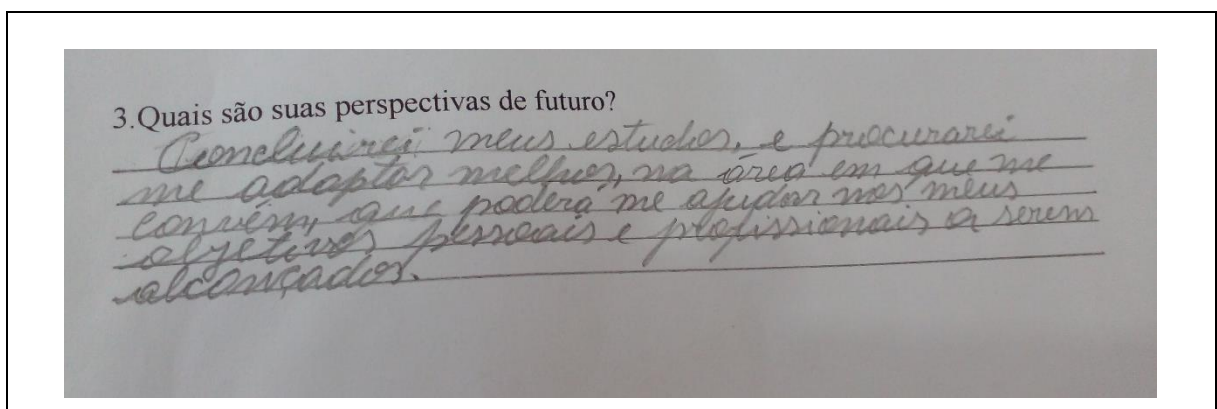 3.Quais são suas perspectivas de futuro?
Concluirei meus estudos, e procurarei
me adaptar melhor, na área em que me
convém, que poderá me ajudar nos meus
objetivos pessoais e profissionais a serem
alcançados.